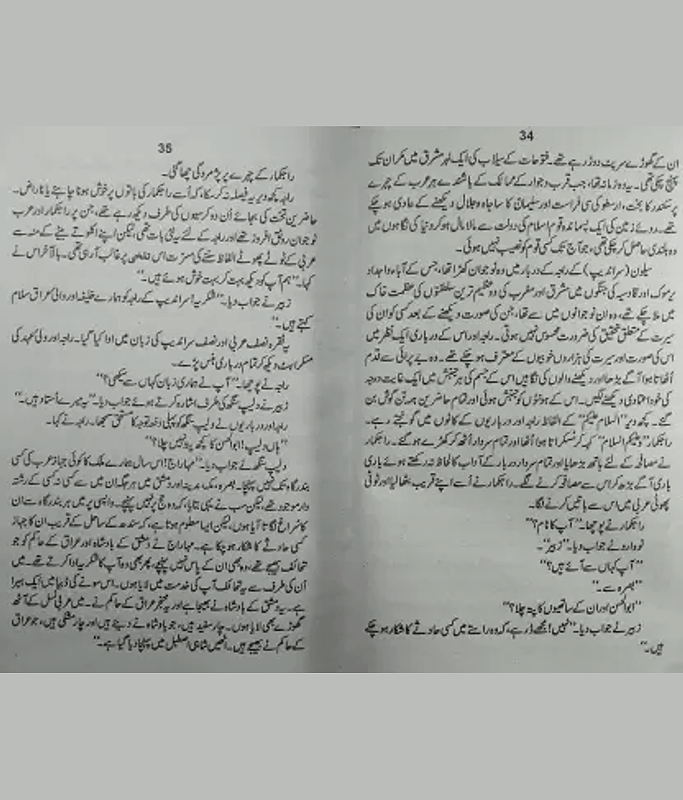 34
ان کے گھوڑے سرپٹ دوڑ رہے تھے۔ فتوحات کے سیلاب کی ایک لہر مشرق میں مکران تک
پہنچ چکی تھی۔ یہ وہ زمانہ تھا، جب قرب و جوار کے ممالک کے باشندے ہر عرب کے چہرے
پر سکندر کا بخت، ارسطو کی سی فراست اور سلیمان کا سا جاہ و جلال دیکھنے کے عادی ہو چکے
تھے۔ روئے زمین کی ایک پسماندہ قوم اسلام کی دولت سے مالا مال ہو کر دنیا کی نگاہوں میں
وہ بلندی حاصل کر چکی تھی، جو آج تک کسی قوم کو نصیب نہیں ہوئی۔
سیلون (سراندیپ) کے راجہ کے دربار میں وہ نوجوان کھڑا تھا، جس کے آباء و اجداد
یرموک اور قادسیہ کی جنگوں میں مشرق اور مغرب کی دو عظیم ترین سلطنتوں کی عظمت خاک
میں ملا چکے تھے، وہ ان نوجوانوں میں سے تھا، جن کی صورت دیکھنے کے بعد کسی کو ان کی
سیرت کے متعلق تحقیق کی ضرورت محسوس نہیں ہوتی۔ راجہ اور اس کے درباری ایک نظر میں
اس کی صورت اور سیرت کی ہزاروں خوبیوں کے معترف ہو چکے تھے۔ وہ بے پروائی سے قدم
اٹھاتا ہوا آگے بڑھا اور دیکھنے والوں کی نگاہیں اس کے جسم کی ہر جنبش میں ایک غایت درجہ
کی خود اعتمادی دیکھنے لگیں۔ اس کے ہونٹوں کو جنبش ہوئی اور تمام حاضرین ہمہ تن گوش بن
گئے۔ کچھ دیر ”السلام علیکم“ کے الفاظ راجہ اور درباریوں کے کانوں میں گونجتے رہے۔
راجکمار ”وعلیکم السلام“ کہہ کر مسکراتا ہوا اٹھا اور تمام سردار اٹھ کر کھڑے ہو گئے۔ راجکمار
نے مصافحہ کے لئے ہاتھ بڑھایا اور تمام سردار دربار کے آداب کا لحاظ نہ رکھتے ہوئے باری
باری آگے بڑھ کر اس سے مصافحہ کرنے لگے۔ راجکمار نے اسے اپنے قریب بٹھا لیا اور ٹوٹی
پھوٹی عربی میں اس سے باتیں کرنے لگا۔
راجکمار نے پوچھا۔ ”آپ کا نام؟“
نووارد نے جواب دیا۔ ”زبیر“۔
”آپ کہاں سے آئے ہیں؟“
”بصرہ سے۔“
”ابوالحسن اور ان کے ساتھیوں کا پتہ چلا؟“
زبیر نے جواب دیا۔ ”نہیں! مجھے ڈر ہے، کہ وہ راستے میں کسی حادثے کا شکار ہو چکے
ہیں۔“
35
راجکمار کے چہرے پر پژمردگی چھا گئی۔
راجہ کچھ دیر یہ فیصلہ نہ کر سکا، کہ اُسے راجکمار کی باتوں پر خوش ہونا چاہئے یا ناراض۔
حاضرین تخت کی بجائے اُن دو کرسیوں کی طرف دیکھ رہے تھے، جن پر راجکمار اور عرب
نوجوان رونق افروز تھے اور راجہ کے لئے یہ نئی بات تھی، لیکن اپنے اکلوتے بیٹے کے منہ سے
عربی کے ٹوٹے پھوٹے الفاظ سننے کی مسرت اس خلش پر غالب آ رہی تھی۔ بالآخر اس نے
کہا۔ ”ہم آپ کو دیکھ بہت خوش ہوئے ہیں۔“
زبیر نے جواب دیا۔ ”شکریہ! سراندیپ کے راجہ کو ہمارے خلیفہ اور والی عراق سلام
کہتے ہیں۔“
یہ فقرہ نصف عربی اور نصف سراندیپ کی زبان میں ادا کیا گیا۔ راجہ اور ولی عہد کی
مسکراہٹ دیکھ کر تمام درباری ہنس پڑے۔
راجہ نے پوچھا۔ ”آپ نے ہماری زبان کہاں سے سیکھی؟“
زبیر نے دلیپ سنگھ کی طرف اشارہ کرتے ہوئے جواب دیا۔ ”یہ میرے اُستاد ہیں۔“
راجہ اور درباریوں نے دلیپ سنگھ کو پہلی دفعہ توجہ کا مستحق سمجھا۔ راجہ نے کہا۔
”ہاں دلیپ! ابوالحسن کا کچھ پتہ نہیں چلا؟“
دلیپ سنگھ نے جواب دیا۔ ”مہاراج! اس سال ہمارے ملک کا کوئی جہاز عرب کی کسی
بندرگاہ تک نہیں پہنچا۔ بصرہ، مکہ، مدینہ اور دمشق میں ہر جگہ ان میں سے کسی نہ کسی کے رشتہ
دار موجود تھے، لیکن سب نے یہی بتایا، کہ وہ حج پر نہیں پہنچے۔ واپسی پر میں ہر بندرگاہ سے ان
کا سراغ لگاتا آیا ہوں، لیکن ایسا معلوم ہوتا ہے، کہ سندھ کے ساحل کے قریب ان کا جہاز
کسی حادثے کا شکار ہو چکا ہے۔ مہاراج نے دمشق کے بادشاہ اور عراق کے حاکم کو جو
تحائف بھیجے تھے، وہ بھی ان کے پاس نہیں پہنچے، پھر بھی وہ آپ کا شکریہ ادا کرتے تھے۔ میں
اُن کی طرف سے یہ تحائف آپ کی خدمت میں لایا ہوں۔ اس سونے کی ڈبیا میں ایک ہیرا
ہے۔ یہ دمشق کے بادشاہ نے بھیجا ہے اور یہ خنجر عراق کے حاکم نے۔ میں عربی نسل کے آٹھ
گھوڑے بھی لایا ہوں۔ چار سفید ہیں، جو بادشاہ نے دیئے ہیں اور چار مشکی ہیں، جو عراق
کے حاکم نے بھیجے ہیں۔ انہیں شاہی اصطبل میں پہنچا دیا گیا ہے۔“